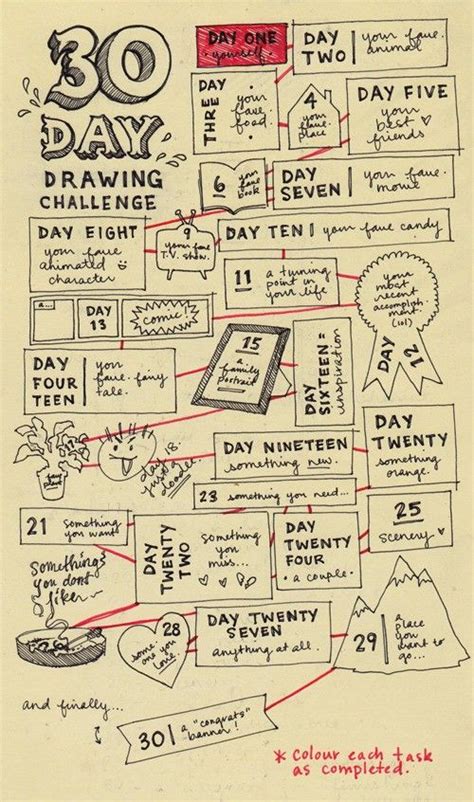 30
DAY
DRAWING
CHALLENGE
DAY ONE
yourself.
DAY
TWO
your fave
animal
DAY
THREE
your
fave
food.
4
your
fave
place
DAY FIVE
your
best
friends
6
your
fave
book
DAY
SEVEN
your fave
movie
DAY EIGHT
your fave
animated
character
9
your fave
T.V. show.
DAY TEN
your fave candy
11
a turning
point in
your life
your
most
recent
accomplish
ment.
(lol)
DAY
12
a...
DAY
13
comic!
DAY
FOUR
TEEN
your
fave fairy
tale.
15
a
family
portrait
DAY
SIXTEEN =
inspiration
fave
plant
day 18.
just a
doodle
DAY NINETEEN
something new.
DAY
TWENTY
something
orange.
23
something you need...
21
something
you want
DAY
TWENTY
TWO
something
you
miss...
DAY
TWENTY
FOUR
a couple.
25
scenery
somethings
you dont
like
28
some
one you
love.
DAY TWENTY
SEVEN
anything at all.
29
a
place
you
want to
go...
and finally...
30
a "congrats"
banner!
* Colour each task
as completed.